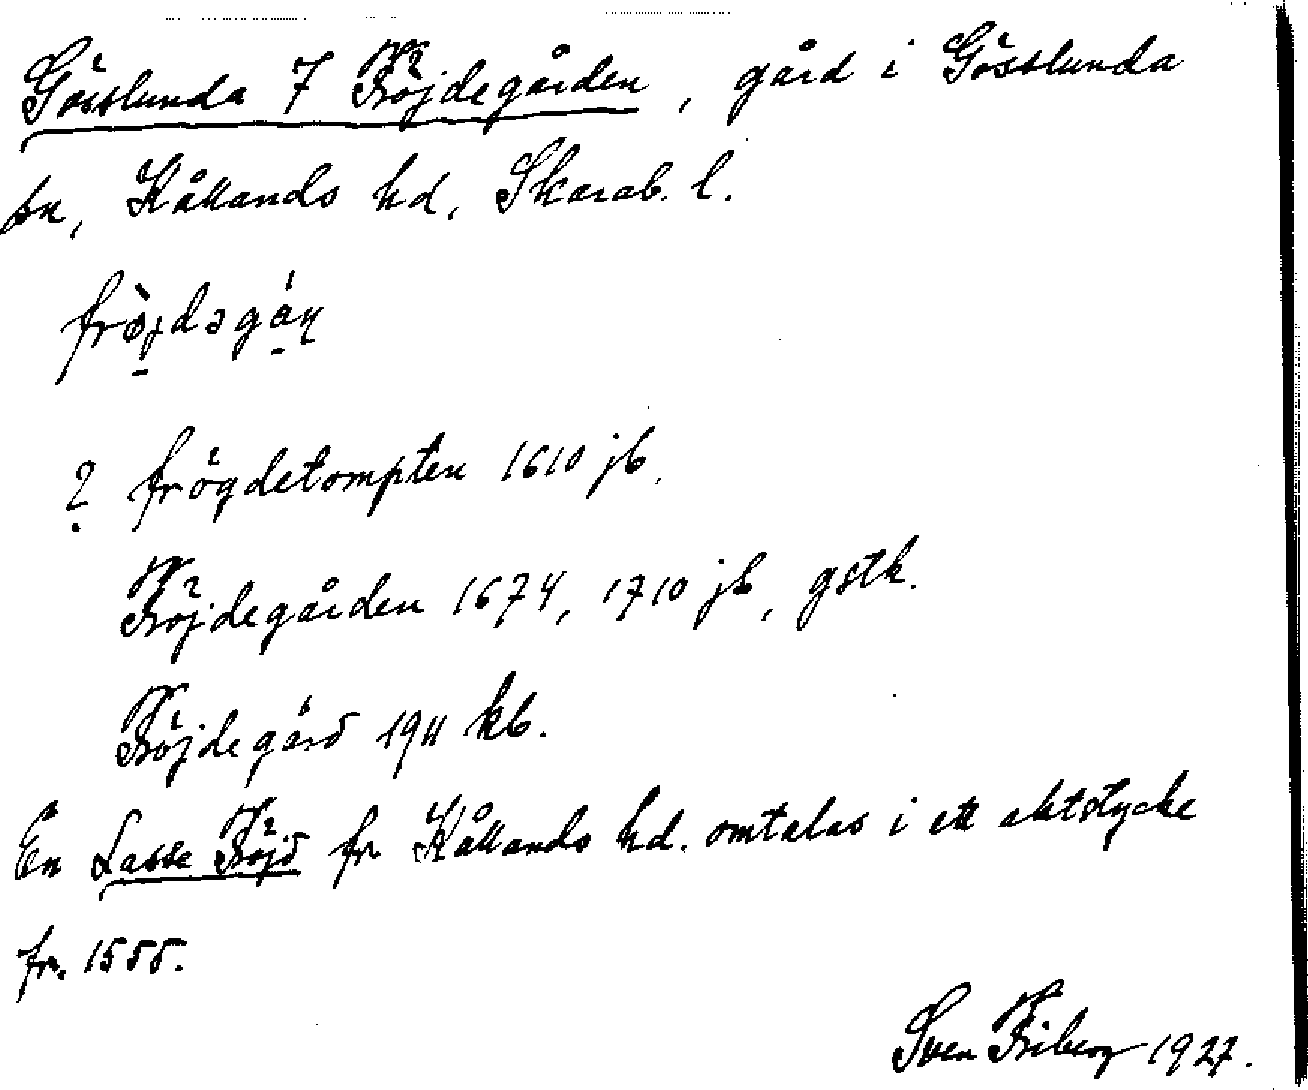 Gösslunda 7 Fröjdegården, gård i Gösslunda
sn, Kållands hd, Skarab. l.
frö̀jdəgáɳ
? frögdetompten 1610 jb.
Fröjdegården 1674, 1710 jb, gstk.
Fröjdegård 1911 kb.
En Lasse Fröjd fr Kållands hd. omtalas i ett aktstycke
fr. 1555.
Sven Friberg 1927.